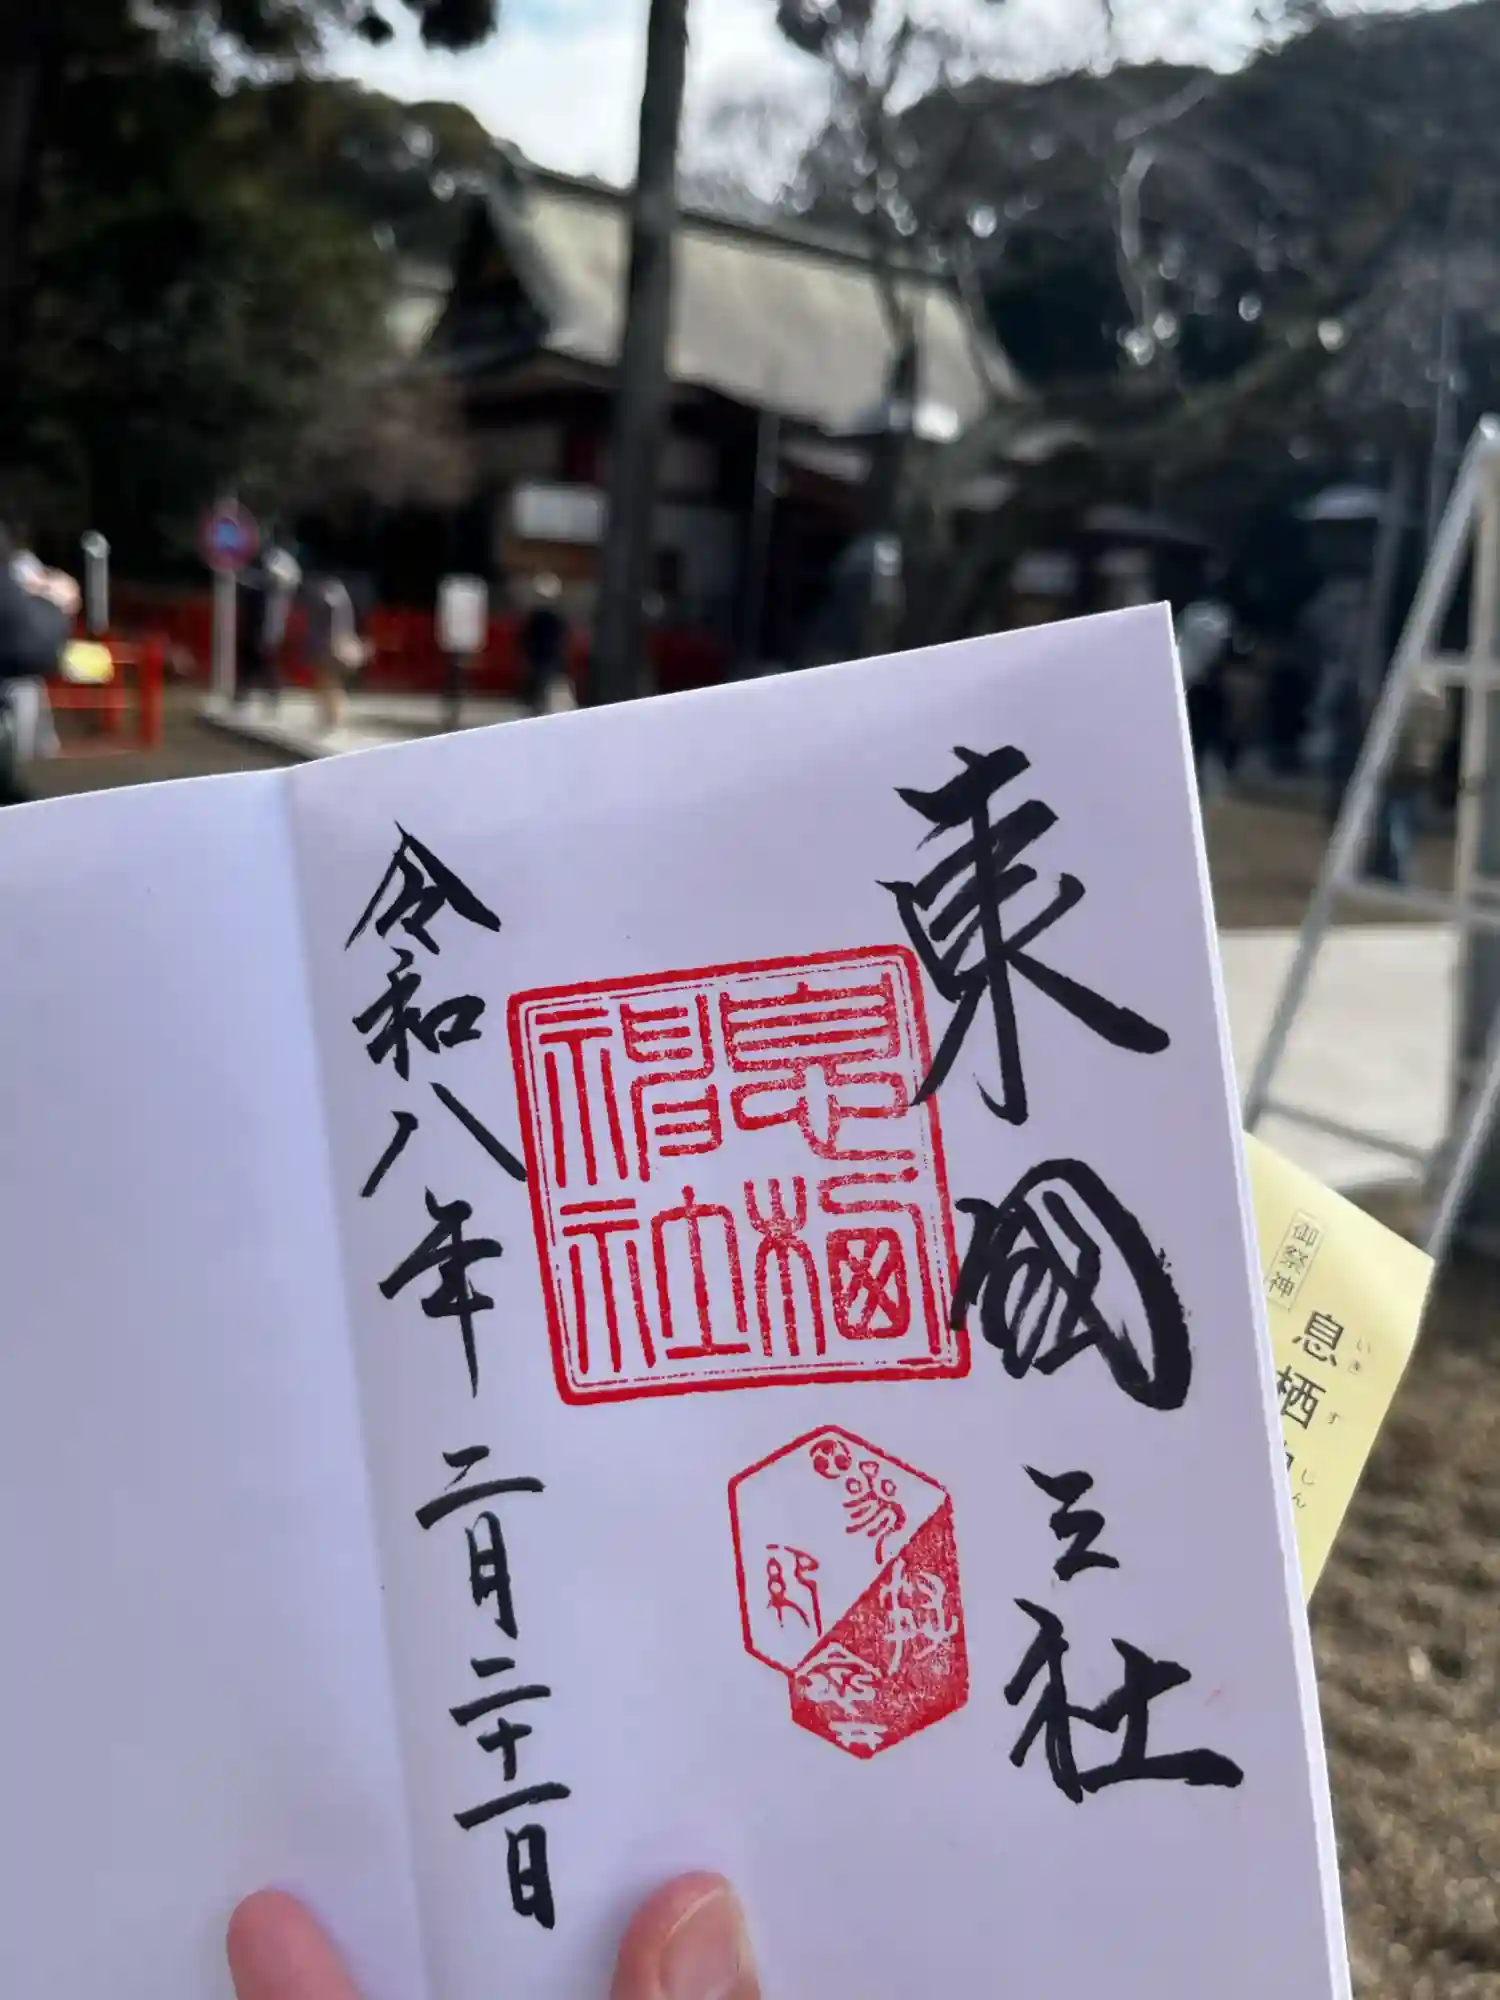 東國三社
息栖神社
令和八年二月二十一日
御祭神
息栖
いきす
しん